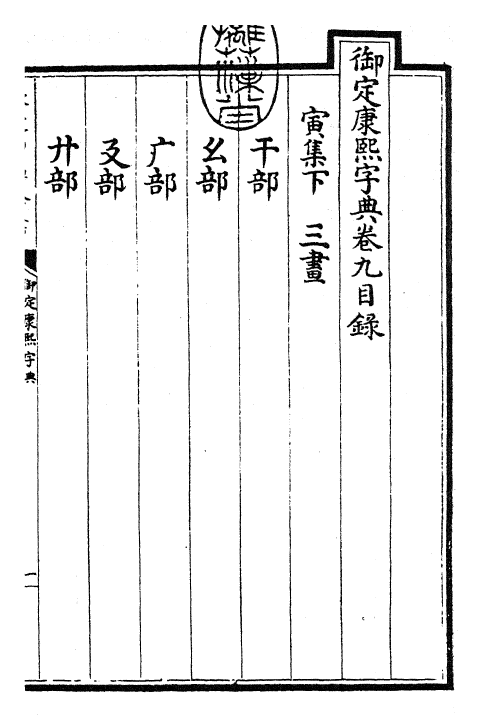 御定康熙字典卷九目錄
寅集下 三畫
干部
幺部
广部
廴部
廾部
御定康熙字典
一